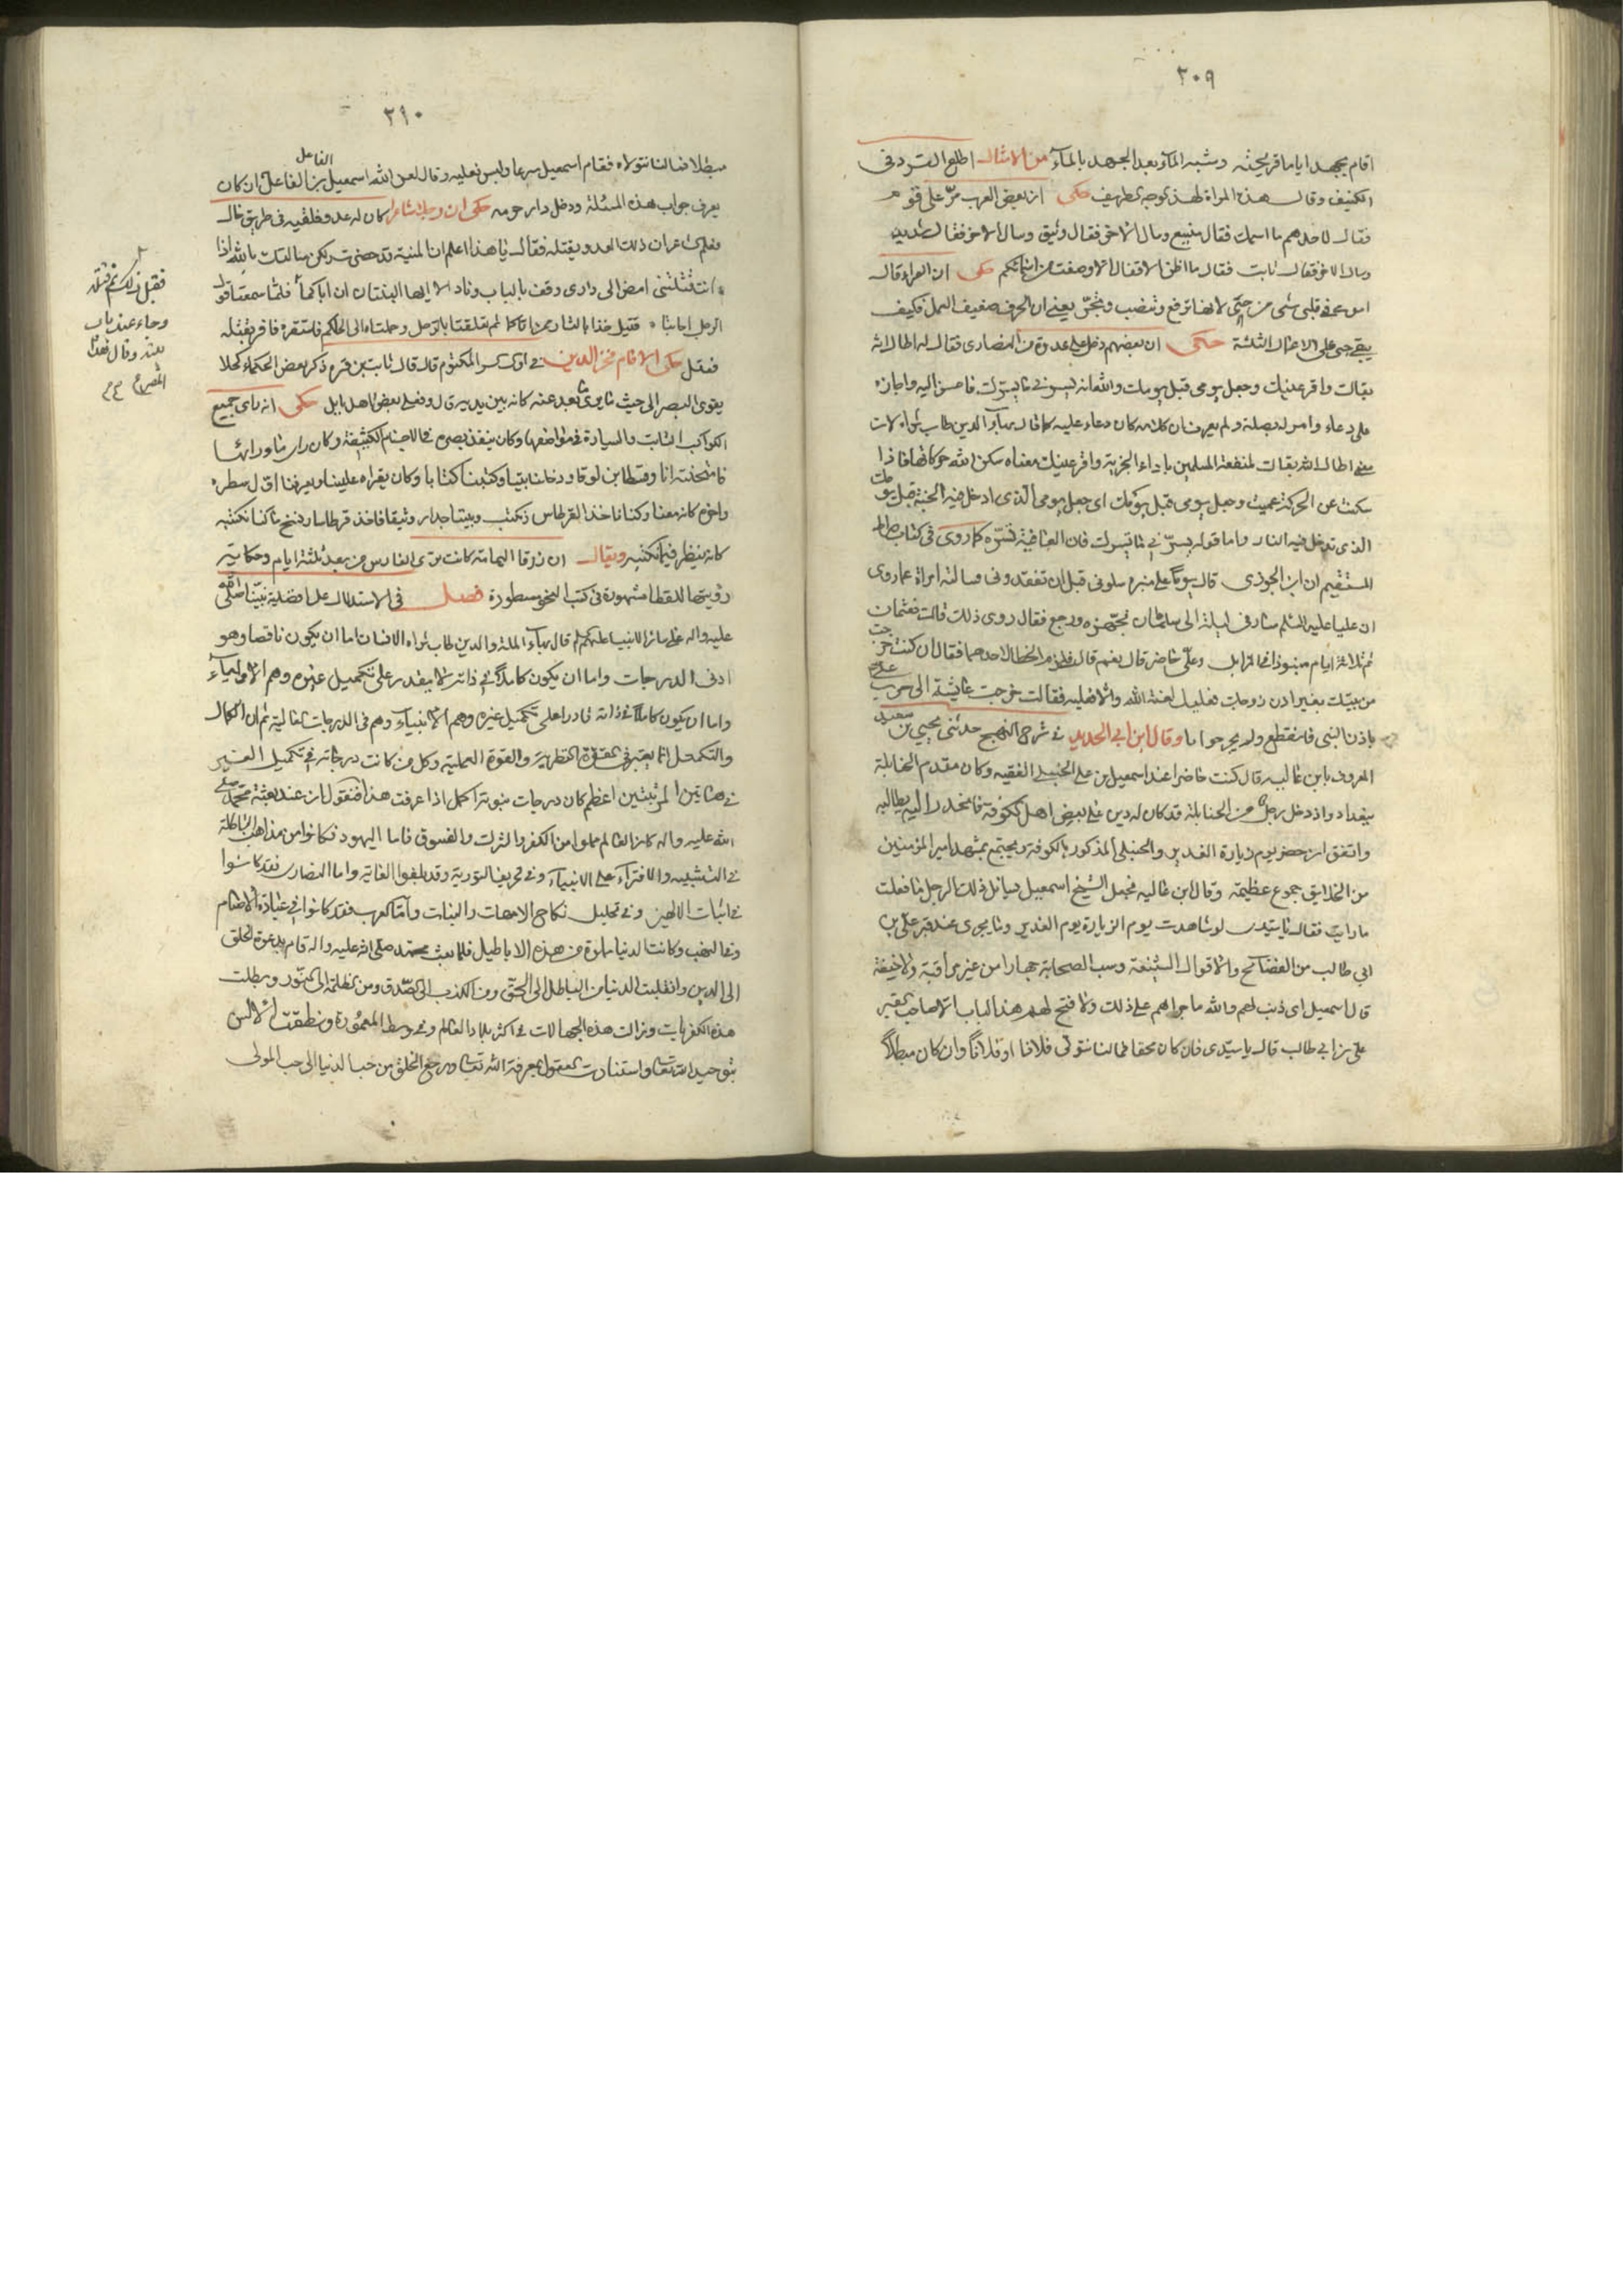 ٣٠٩
اقام يجهد اياما قريحته وشبه الماء بعد الجهد بالماء من الامثال اطلع القرد فى
الكنيف وقال هذه المراة لهذا الوجه الظريف حكى ان بعض العرب مر على قوم
فقال لاحدهم ما اسمك فقال منيع وسال الاخر فقال وثيق وسال الاخر فقال شديد
وسال الاخر فقال ثابت فقال ما اظن الاقفال الا وضعت من اسمائكم حكى ان الفراء قال
اموت وفى قلبى شى من حتى لانها ترفع وتنصب وتجر يعنى ان الحرف ضعيف العمل فكيف
يقع حتى على الاعمال الثلثة حكى ان بعضهم دخل على عدوه من النصارى فقال له اطال الله
بقاك واقر عينك وجعل يومى قبل يومك والله انه يسرنى ما يسرك فاحسن اليه واجازه
على دعاء وامر له بصلة ولم يعرف ان كلامه كان دعاء عليه كما قال بهاء الدين طاب ثراه لان
معنى اطال الله بقاك لمنفعة المسلمين باداء الجزية واقر عينك معناه سكن الله حركاتها فاذا
سكنت عن الحركة عميت وجعل يومى قبل يومك اى جعل يومى الذى ادخل فيه الجنة قبل يومك
الذى تدخل فيه النار واما قوله يسرنى ما يسرك فان العافية تسره كما روى فى كتاب صراط
المستقيم ان ابن الجوزى قال يوما على منبره سلونى قبل ان تفقدونى فسالته امراة عما روى
ان عليا عليه السلم سار فى ليلة الى سلمان فجهزه ورجع فقال روى ذلك قالت فعثمان
ثم ثلاثة ايام منبوذا فى المزابل وعلى حاضر قال نعم قالت فقد لزم الخطا لاحدهما فقال ان كنت خرجت
من بيتك بغير اذن زوجك فعليك لعنة الله والا فعليه فقالت خرجت عايشة الى حرب على
باذن النبى فانقطع ولم يحر جوابا وقال ابن ابى الحديد فى شرح النهج حدثنى يحيى بن سعيد
المعروف بابن عاليه قال كنت حاضرا عند اسمعيل بن على الحنبلى الفقيه وكان مقدم الحنابلة
ببغداد واذ دخل رجل من الحنابلة قد كان له دين على بعض اهل الكوفة فانحدر اليه يطالبه
واتفق ان حضر يوم زيارة الغدير والحنبلى المذكور بالكوفة ويجتمع بمشهد امير المؤمنين
من الخلايق جموع عظيمة وقال ابن عاليه فجعل الشيخ اسمعيل يسائل ذلك الرجل ما فعلت
ما رايت فقال يا سيدى لو شاهدت يوم الزيارة يوم الغدير وما يجرى عند قبر على بن
ابي طالب من الفضائح والاقوال الشنيعة وسب الصحابة جهارا من غير مراقبة ولا خيفة
قال اسمعيل اى ذنب لهم والله ما جراهم على ذلك ولا فتح لهم هذا الباب الا صاحب القبر
على بن ابي طالب قال يا سيدى فان كان محقا فما لنا نتولى فلانا او فلانا وان كان مبطلا
٢١٠
مبطلا فما لنا نتولاه فقام اسمعيل سرعا ولبس نعليه وقال لعن الله اسمعيل بن الفاعل الفاعل ان كان
يعرف جواب هذه المسئلة ودخل دار حرمه حكى ان رجلا شاعرا كان له عدو فلقيه فى طريق خال
فعلم الشاعر ان ذلك العدو يقتله فقال يا هذا اعلم ان المنية قد حضرت ولكن سالتك بالله اذا
انت قتلتنى امض الى دارى وقف بالباب وناد الا ايها البنتان ان اباكما فلما سمعتا قول
الرجل اجابتا قتيل خذا بالثار ممن اتاكما ثم تعلقتا بالرجل وحملتاه الى الحاكم فاستقره فاقر بقتله
فقتل حكى الامام فخر الدين فى اول السر المكتوم قال قال ثابت بن قره ذكر بعض الحكماء كحلا
يقوى البصر الى حيث ما يرى ما بعد عنه كانه بين يديه قال وفعله بعض اهل بابل حكى انه راى جميع
الكواكب الثابت والسيارة فى مواضعها وكان ينفذ بصره فى الاجسام الكثيفة وكان راى ما ورائها
فامتحنته انا وقسطا بن لوقا ودخلنا بيتا وكتبنا كتابا وكان يقراه علينا ويعرفنا اول سطره
واخره كانه معنا وكنا ناخذ القرطاس نكتب وبيننا جدار وثيق فاخذ قرطاسا ونسخ ما كنا نكتبه
كانه ينظر فيما نكتبه ويقال ان زرقا اليمامة كانت ترى الفارس من بعد ثلثة ايام وحكاية
رؤيتها للقطا مشهورة فى كتب النحو مسطورة فصل فى الاستدلال على افضلية نبينا صلى الله
عليه واله على سائر الانبياء عليهم السلم قال بهاء الملة والدين طاب ثراه الانسان اما ان يكون ناقصا وهو
ادنى الدرجات واما ان يكون كاملا فى ذاته لا يقدر على تكميل غيره وهم الاولياء
واما ان يكون كاملا فى ذاته قادرا على تكميل غيره وهم الانبياء وهم فى الدرجات العالية ثم ان الكمال
والتكميل انما يعتبر فى القوة النظرية والقوة العملية وكل من كانت درجاته فى تكميل الغير
فى هاتين المرتبتين اعظم كان درجات نبوته اكمل اذا عرفت هذا فنقول ان عند بعثة محمد صلى
الله عليه واله كان العالم مملوا من الكفر والشرك والفسوق فاما اليهود فكانوا من مذاهب الباطلة
فى التشبيه والافتراء على الانبياء وفى تحريف التورية وقد بلغوا الغاية واما النصارى فقد كانوا
فى اثبات الالهين وفى تحليل نكاح الامهات والبنات واما العرب فقد كانوا فى عبادة الاصنام
وفى النهب وكانت الدنيا مملوة من هذه الاباطيل فلما بعث محمد صلى الله عليه واله قام بدعوة الخلق
الى الدين وانقلبت الدنيا من الباطل الى الحق ومن الكذب الى الصدق ومن الظلمة الى النور وبطلت
هذه الكفريات وزالت هذه الجهالات فى اكثر بلاد العالم وفى وسط المعمورة ونطقت الالسن
بتوحيد الله تعالى واستنارت العقول بمعرفة الله تعالى ورجع الخلق من حب الدنيا الى حب المولى
فقبل ذلك ثم قتله
وجاء عند باب
بيته وقال هذا
المصراع